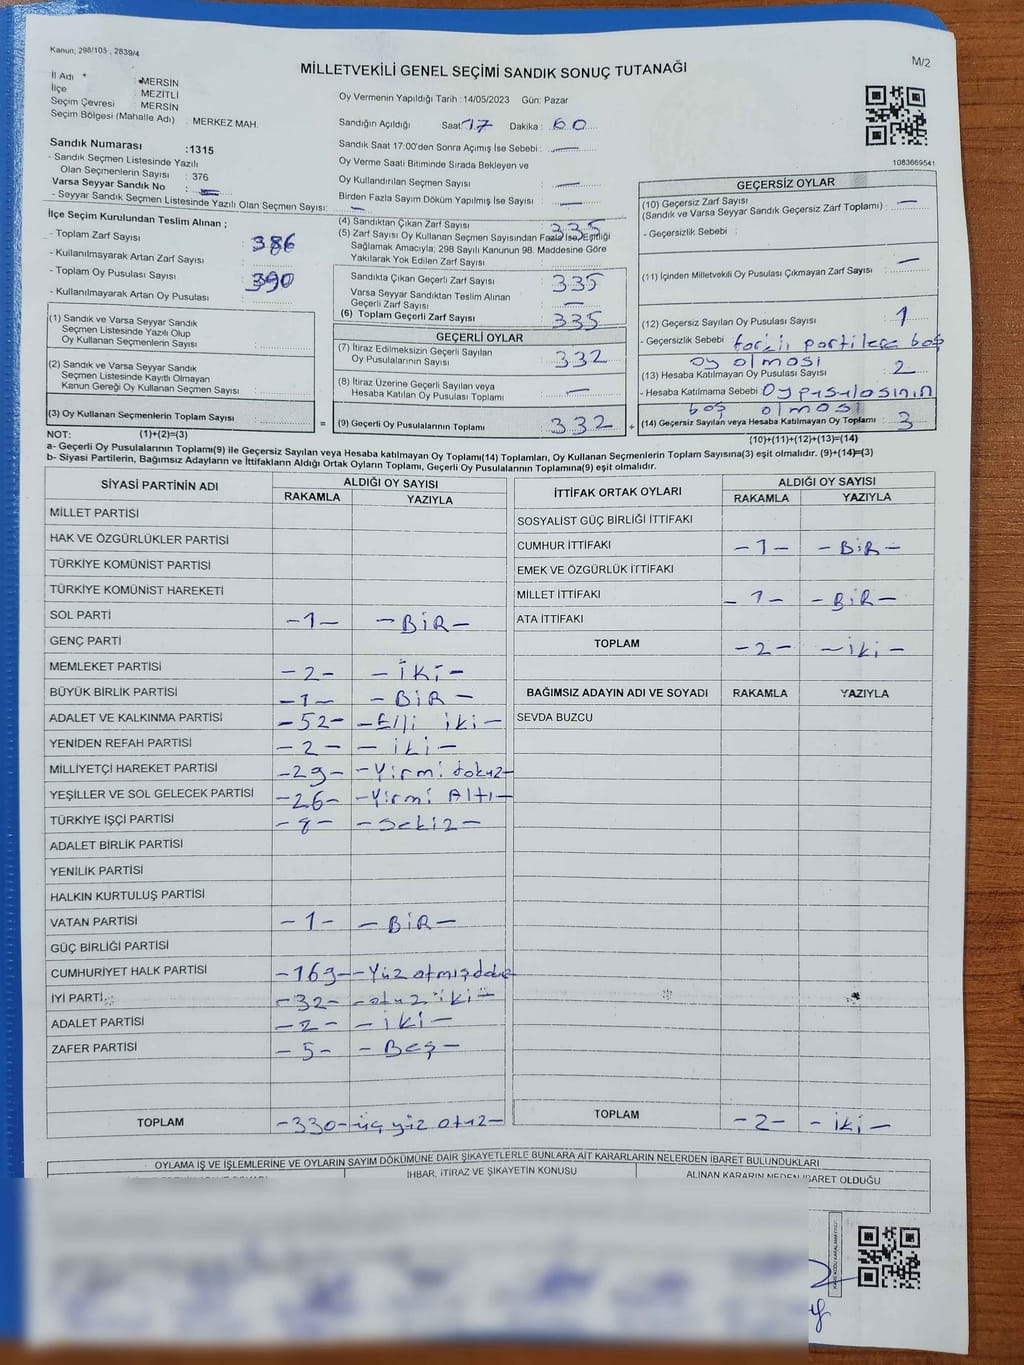 Kanun; 298/105 , 2839/4
M/2
MİLLETVEKİLİ GENEL SEÇİMİ SANDIK SONUÇ TUTANAĞI
İl Adı : MERSİN
İlçe : MEZİTLİ
Seçim Çevresi : MERSİN
Seçim Bölgesi (Mahalle Adı) : MERKEZ MAH.
Sandık Numarası :1315
- Sandık Seçmen Listesinde Yazılı
Olan Seçmenlerin Sayısı : 376
Varsa Seyyar Sandık No : —
- Seyyar Sandık Seçmen Listesinde Yazılı Olan Seçmen Sayısı: —
Oy Vermenin Yapıldığı Tarih :14/05/2023 Gün: Pazar
Sandığın Açıldığı Saat: 17 Dakika : 60
Sandık Saat 17:00'den Sonra Açımış İse Sebebi : —
Oy Verme Saati Bitiminde Sırada Bekleyen ve
Oy Kullandırılan Seçmen Sayısı : —
Birden Fazla Sayım Döküm Yapılmış İse Sayısı : —
1083669541
İlçe Seçim Kurulundan Teslim Alınan ;
- Toplam Zarf Sayısı : 386
- Kullanılmayarak Artan Zarf Sayısı :
- Toplam Oy Pusulası Sayısı : 390
- Kullanılmayarak Artan Oy Pusulası :
(1) Sandık ve Varsa Seyyar Sandık
Seçmen Listesinde Yazılı Olup
Oy Kullanan Seçmenlerin Sayısı :
(2) Sandık ve Varsa Seyyar Sandık
Seçmen Listesinde Kayıtlı Olmayan
Kanun Gereği Oy Kullanan Seçmen Sayısı :
(3) Oy Kullanan Seçmenlerin Toplam Sayısı :
(4) Sandıktan Çıkan Zarf Sayısı : 335
(5) Zarf Sayısı Oy Kullanan Seçmen Sayısından Fazla İse, Eşitliği
Sağlamak Amacıyla; 298 Sayılı Kanunun 98. Maddesine Göre
Yakılarak Yok Edilen Zarf Sayısı :
Sandıkta Çıkan Geçerli Zarf Sayısı : 335
Varsa Seyyar Sandıktan Teslim Alınan
Geçerli Zarf Sayısı : —
(6) Toplam Geçerli Zarf Sayısı : 335
GEÇERLİ OYLAR
(7) İtiraz Edilmeksizin Geçerli Sayılan
Oy Pusulalarının Sayısı : 332
(8) İtiraz Üzerine Geçerli Sayılan veya
Hesaba Katılan Oy Pusulası Toplamı : —
(9) Geçerli Oy Pusulalarının Toplamı : 332
GEÇERSİZ OYLAR
(10) Geçersiz Zarf Sayısı
(Sandık ve Varsa Seyyar Sandık Geçersiz Zarf Toplamı) : —
- Geçersizlik Sebebi :
(11) İçinden Milletvekili Oy Pusulası Çıkmayan Zarf Sayısı : —
(12) Geçersiz Sayılan Oy Pusulası Sayısı : 1
- Geçersizlik Sebebi partilere boş
oy olması
(13) Hesaba Katılmayan Oy Pusulası Sayısı : 2
- Hesaba Katılmama Sebebi Oy pusulasının
boş olması
(14) Geçersiz Sayılan veya Hesaba Katılmayan Oy Toplamı : 3
NOT: (1)+(2)=(3)
(10)+(11)+(12)+(13)=(14)
a- Geçerli Oy Pusulalarının Toplamı(9) ile Geçersiz Sayılan veya Hesaba katılmayan Oy Toplamı(14) Toplamları, Oy Kullanan Seçmenlerin Toplam Sayısına(3) eşit olmalıdır. (9)+(14)=(3)
b- Siyasi Partilerin, Bağımsız Adayların ve İttifakların Aldığı Ortak Oyların Toplamı, Geçerli Oy Pusulalarının Toplamına(9) eşit olmalıdır.
SİYASİ PARTİNİN ADI ALDIĞI OY SAYISI
RAKAMLA YAZIYLA
MİLLET PARTİSİ
HAK VE ÖZGÜRLÜKLER PARTİSİ
TÜRKİYE KOMÜNİST PARTİSİ
TÜRKİYE KOMÜNİST HAREKETİ
SOL PARTİ -1- -BİR-
GENÇ PARTİ
MEMLEKET PARTİSİ -2- -İKİ-
BÜYÜK BİRLİK PARTİSİ -1- -BİR-
ADALET VE KALKINMA PARTİSİ -52- -Elli iki-
YENİDEN REFAH PARTİSİ -2- -iki-
MİLLİYETÇİ HAREKET PARTİSİ -29- -Yirmi dokuz-
YEŞİLLER VE SOL GELECEK PARTİSİ -26- -Yirmi Altı-
TÜRKİYE İŞÇİ PARTİSİ -8- -Sekiz-
ADALET BİRLİK PARTİSİ
YENİLİK PARTİSİ
HALKIN KURTULUŞ PARTİSİ
VATAN PARTİSİ -1- -BİR-
GÜÇ BİRLİĞİ PARTİSİ
CUMHURİYET HALK PARTİSİ -169- -Yüz atmış
İYİ PARTİ -32- -otuz iki-
ADALET PARTİSİ -2- -İKİ-
ZAFER PARTİSİ -5- -Beş-
TOPLAM -330- üç yüz otuz-
İTTİFAK ORTAK OYLARI ALDIĞI OY SAYISI
RAKAMLA YAZIYLA
SOSYALİST GÜÇ BİRLİĞİ İTTİFAKI
CUMHUR İTTİFAKI -1- -BİR-
EMEK VE ÖZGÜRLÜK İTTİFAKI
MİLLET İTTİFAKI -1- -BİR-
ATA İTTİFAKI
TOPLAM -2- -iki-
BAĞIMSIZ ADAYIN ADI VE SOYADI RAKAMLA YAZIYLA
SEVDA BUZCU
TOPLAM -2- -iki-
OYLAMA İŞ VE İŞLEMLERİNE VE OYLARIN SAYIM DÖKÜMÜNE DAİR ŞİKAYETLERLE BUNLARA AİT KARARLARIN NELERDEN İBARET BULUNDUKLARI
İHBAR, İTİRAZ VE ŞİKAYETİN KONUSU
ALINAN KARARIN NEDEN İBARET OLDUĞU